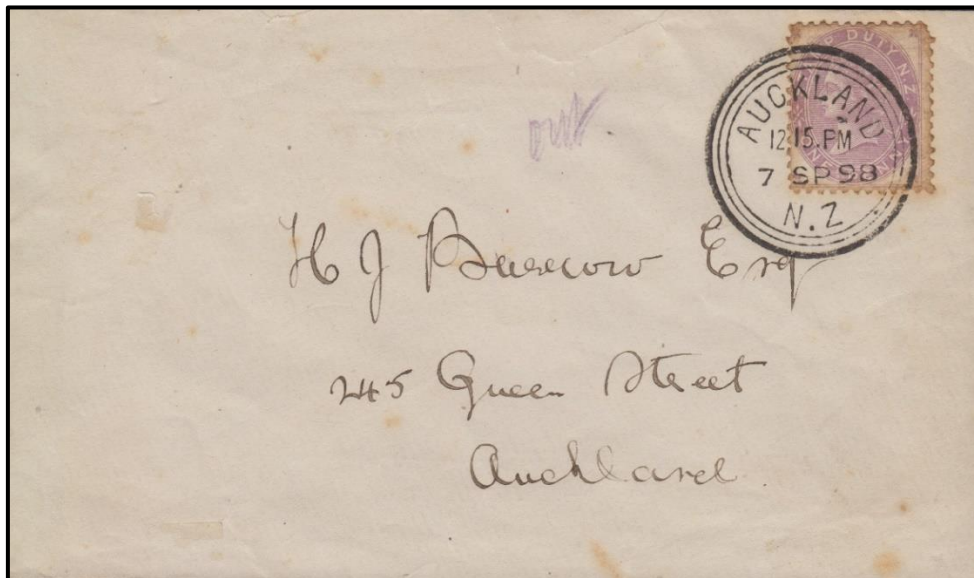 P DUTY N.Z
AUCKLAND
12.15.PM
7 SP 98
N.Z
out
H J Esq
245 Queen Street
Auckland